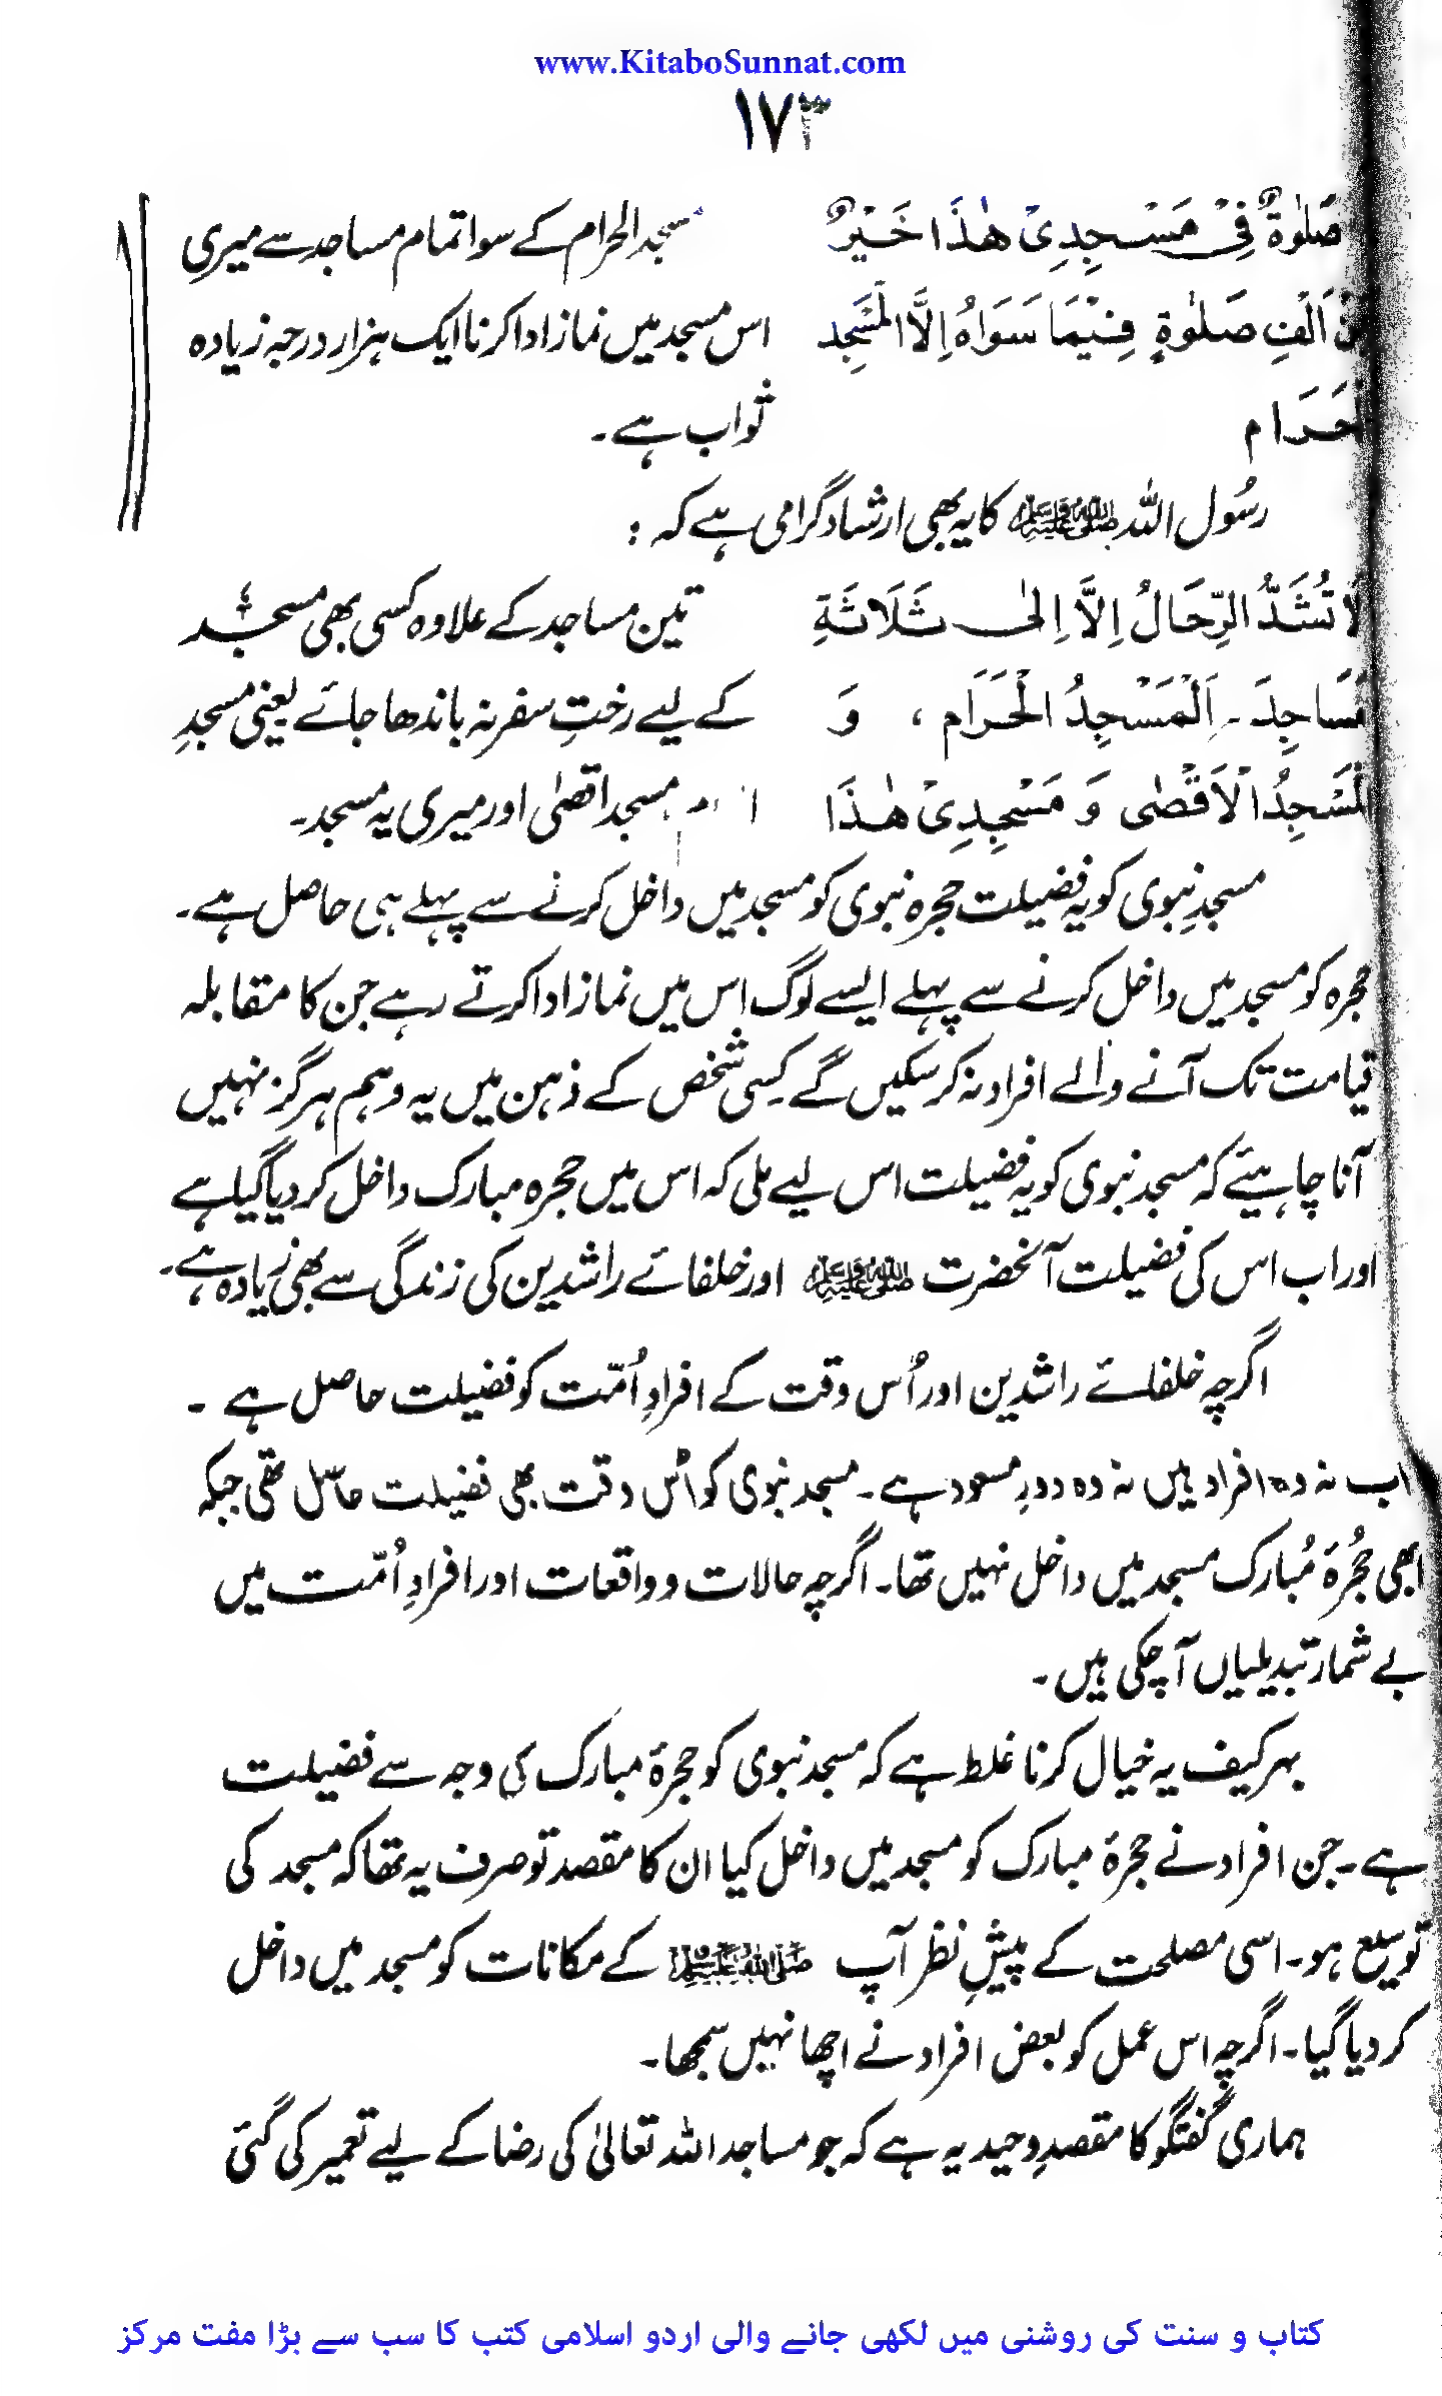 www.KitaboSunnat.com
۱۷۳
صَلٰوةٌ فِیْ مَسْجِدِیْ هٰذَا خَیْرٌ
اَلْفِ صَلٰوةٍ فِیْمَا سَوَاهُ اِلَّا الْمَسْجِد
حَرَام
مسجد الحرام کے سوا تمام مساجد سے میری
اس مسجد میں نماز ادا کرنا ایک ہزار درجہ زیادہ
ثواب ہے۔
رسُول اللہ ﷺ کا یہ بھی ارشادِ گرامی ہے کہ :
لَا تُشَدُّ الرِّحَالُ اِلَّا اِلٰی ثَلَاثَةِ
مَسَاجِدَ۔ اَلْمَسْجِدُ الْحَرَام ، وَ
الْمَسْجِدُ الْاَقْصٰی وَ مَسْجِدِیْ هٰذَا
تین مساجد کے علاوہ کسی بھی مسجد
کے لیے رختِ سفر نہ باندھا جائے یعنی مسجدِ
مسجد اقصٰی اور میری یہ مسجد۔
مسجدِ نبوی کو یہ فضیلت حجرہ نبوی کو مسجد میں داخل کرنے سے پہلے ہی حاصل ہے۔
حجرہ کو مسجد میں داخل کرنے سے پہلے ایسے لوگ اس میں نماز ادا کرتے رہے جن کا مقابلہ
قیامت تک آنے والے افراد نہ کر سکیں گے کسِی شخص کے ذہن میں یہ وہم ہرگز نہیں
آنا چاہیئے کہ مسجد نبوی کو یہ فضیلت اس لیے ملی کہ اس میں حجرہ مبارک داخل کر دیا گیا ہے
اور اب اس کی فضیلت آنحضرت ﷺ اور خلفائے راشدین کی زندگی سے بھی زیادہ ہے۔
اگرچہ خلفائے راشدین اور اُس وقت کے افرادِ اُمّت کو فضیلت حاصل ہے ۔
اب نہ وہ افراد ہیں نہ وہ دورِ مسعود ہے۔ مسجد نبوی کو اُس وقت بھی فضیلت حاصل تھی جبکہ
ابھی حُجُرۂ مُبارک مسجد میں داخل نہیں تھا۔ اگرچہ حالات و واقعات اور افرادِ اُمّت میں
بے شمار تبدیلیاں آ چکی ہیں ۔
بہر کیف یہ خیال کرنا غلط ہے کہ مسجد نبوی کو حجرۂ مبارک کی وجہ سے فضیلت
ہے۔ جن افراد نے حجرۂ مبارک کو مسجد میں داخل کیا ان کا مقصد تو صرف یہ تھا کہ مسجد کی
توسیع ہو۔ اسی مصلحت کے پیشِ نظر آپ ﷺ کے مکانات کو مسجد میں داخل
کر دیا گیا۔ اگرچہ اس عمل کو بعض افراد نے اچھا نہیں سمجھا۔
ہماری گفتگو کا مقصدِ وحید یہ ہے کہ جو مساجد اللہ تعالیٰ کی رضا کے لیے تعمیر کی گئی
کتاب و سنت کی روشنی میں لکھی جانے والی اردو اسلامی کتب کا سب سے بڑا مفت مرکز